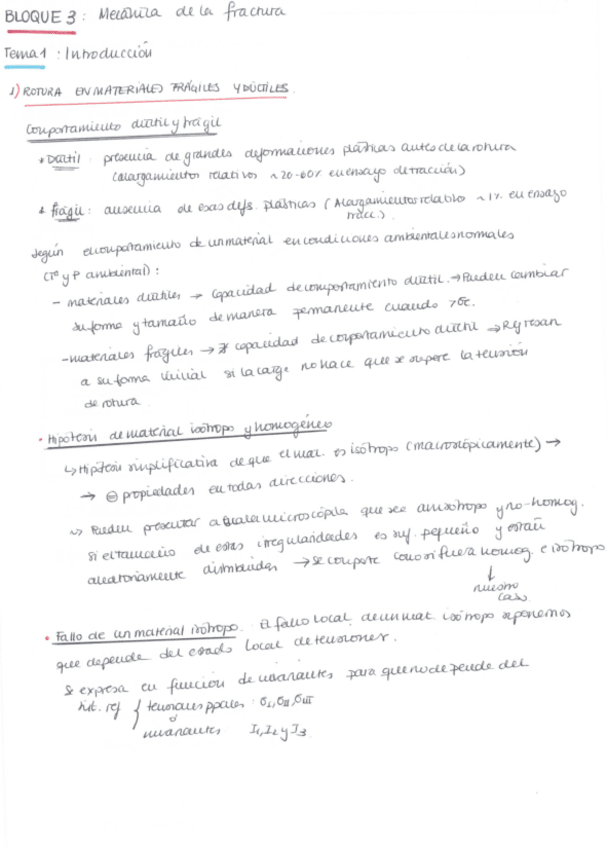 BLOQUE 3: Mecánica de la fractura
Tema 1: Introducción
1) ROTURA EN MATERIALES FRÁGILES Y DÚCTILES.
Comportamiento dúctil y frágil
Dúctil: presencia de grandes deformaciones plásticas antes de la rotura
(alargamientos relativos ~20-60% en ensayo de tracción)
frágil: ausencia de esas defs. plásticas (Alargamientos relativos ~1% en ensayo
tracc.)
Según el comportamiento de un material en condiciones ambientales normales
(Tª y P ambiental):
- materiales dúctiles → Capacidad de comportamiento dúctil. → Pueden cambiar
su forma y tamaño de manera permanente cuando >σc.
- materiales frágiles → ∄ capacidad de comportamiento dúctil → Regresan
a su forma inicial si la carga no hace que se supere la tensión
de rotura.
• Hipótesis de material isótropo y homogéneo
↳ Hipótesis simplificativa de que el mat. es isótropo (macroscópicamente) →
→ ⊜ propiedades en todas direcciones.
Pueden presentar a escala microscópica que sea anisótropo y no-homog.
si el tamaño de estas irregularidades es suf. pequeño y están
aleatoriamente distribuidas → se comporta como si fuera homog. e isótropo
↓
nuestro
caso
• Fallo de un material isótropo. El fallo local de un mat. isótropo suponemos
que depende del estado local de tensiones.
Se expresa en función de invariantes para que no depende del
sist. ref { tensiones ppales: σI, σII, σIII
ó
invariantes I1, I2 y I3